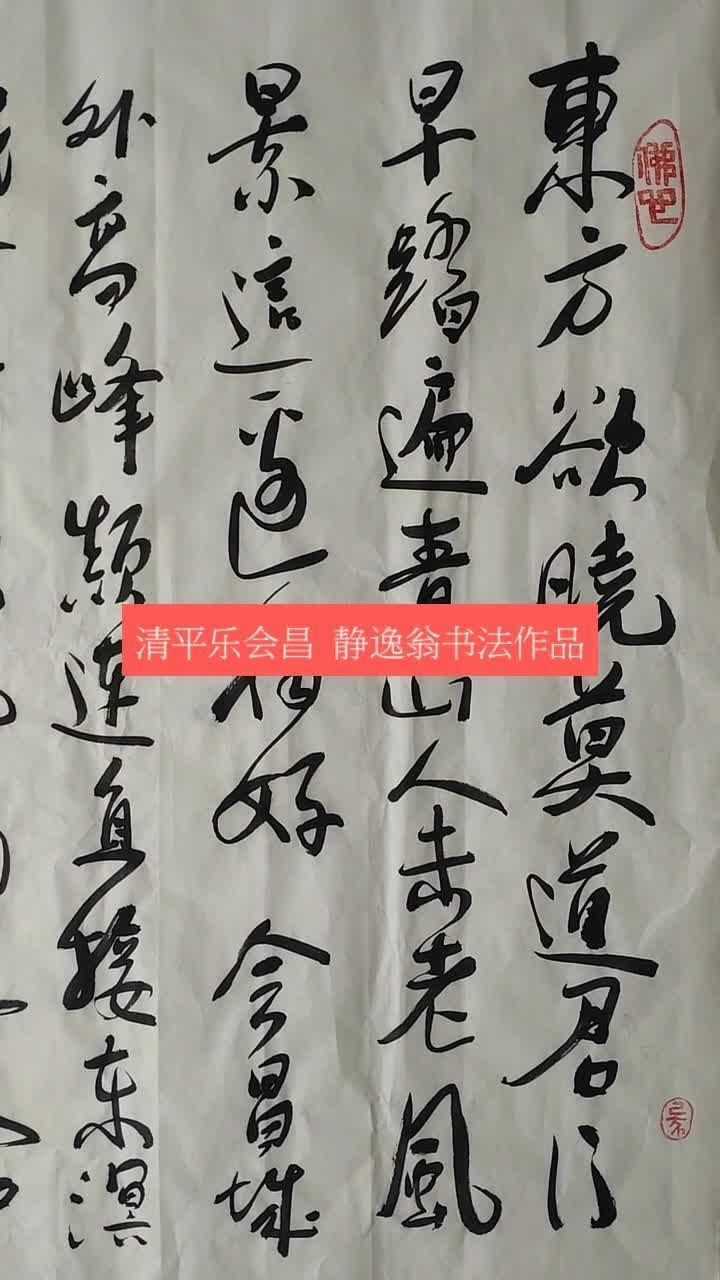 東方欲曉莫道君行
早踏遍青山人未老風
景這邊独好會昌城
外高峰顛連直接东溟
佛心
清平乐会昌 静逸翁书法作品